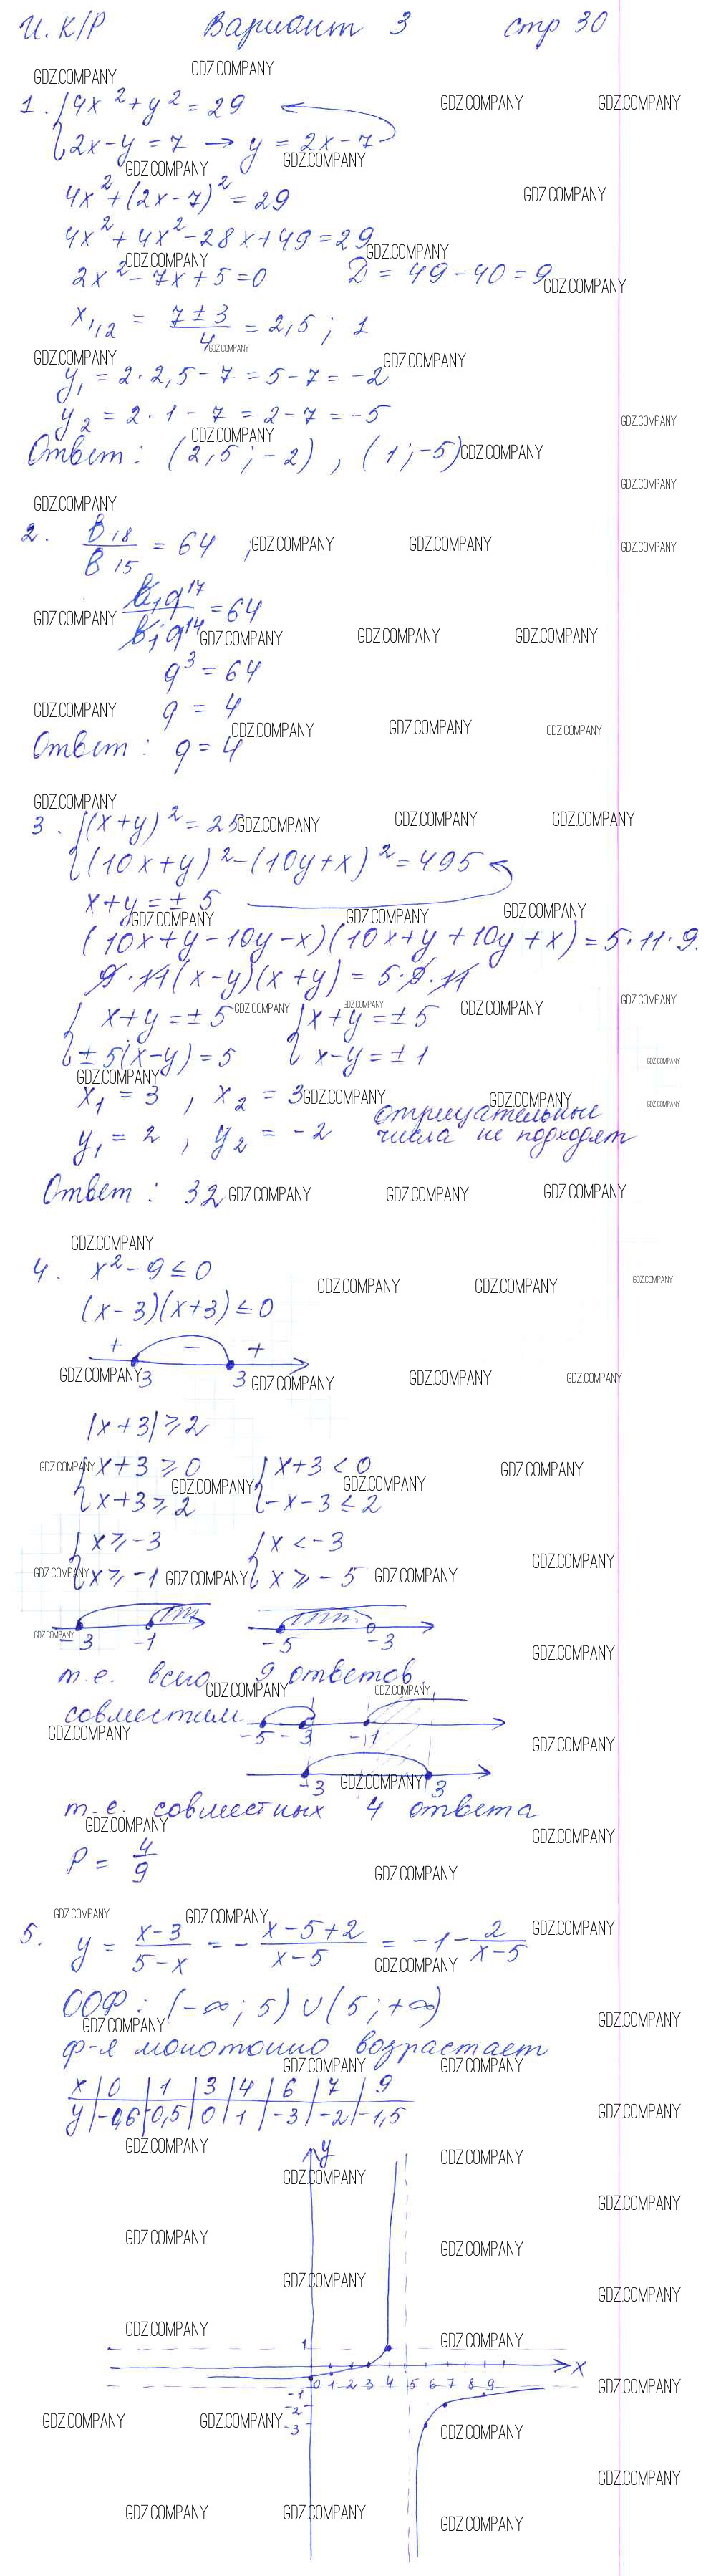 И. К/Р Вариант 3 стр 30
1. {4x² + y² = 29
{2x - y = 7 → y = 2x - 7
4x² + (2x - 7)² = 29
4x² + 4x² - 28x + 49 = 29
2x² - 7x + 5 = 0 D = 49 - 40 = 9
x₁,₂ = (7 ± 3)/4 = 2,5 ; 1
y₁ = 2·2,5 - 7 = 5 - 7 = -2
y₂ = 2·1 - 7 = 2 - 7 = -5
Ответ: (2,5 ; -2) , (1 ; -5)
2. B₁₈/B₁₅ = 64 ;
b₁q¹⁷/b₁q¹⁴ = 64
q³ = 64
q = 4
Ответ: q = 4
3. {(x+y)² = 25
{(10x+y)² - (10y+x)² = 495
x+y = ± 5
(10x+y-10y-x)(10x+y+10y+x) = 5·11·9.
9·11(x-y)(x+y) = 5·9·11
{x+y = ±5 {x+y = ±5
{±5(x-y) = 5 {x-y = ±1
x₁ = 3 , x₂ = 3 отрицательные
y₁ = 2 , y₂ = -2 числа не подходят
Ответ: 32
4. x² - 9 ≤ 0
(x-3)(x+3) ≤ 0
+ - +
-3 3
|x+3| ≥ 2
{x+3 ≥ 0 {x+3 < 0
{x+3 ≥ 2 {-x-3 ≤ 2
{x ≥ -3 {x < -3
{x ≥ -1 {x ≥ -5
-3 -1 -5 -3
т.е. всего 9 ответов
совместим -5 -3 -1
-3 3
т.е. совместных 4 ответа
P = 4/9
5. y = (x-3)/(5-x) = - (x-5+2)/(x-5) = -1 - 2/(x-5)
ООФ: (-∞; 5) ∪ (5; +∞)
ф-я монотонно возрастает
x | 0 | 1 | 3 | 4 | 6 | 7 | 9
y | -0,6 | -0,5 | 0 | 1 | -3 | -2 | -1,5
y
1
x
0 1 2 3 4 5 6 7 8 9
-1
-2
-3
GDZ.COMPANY